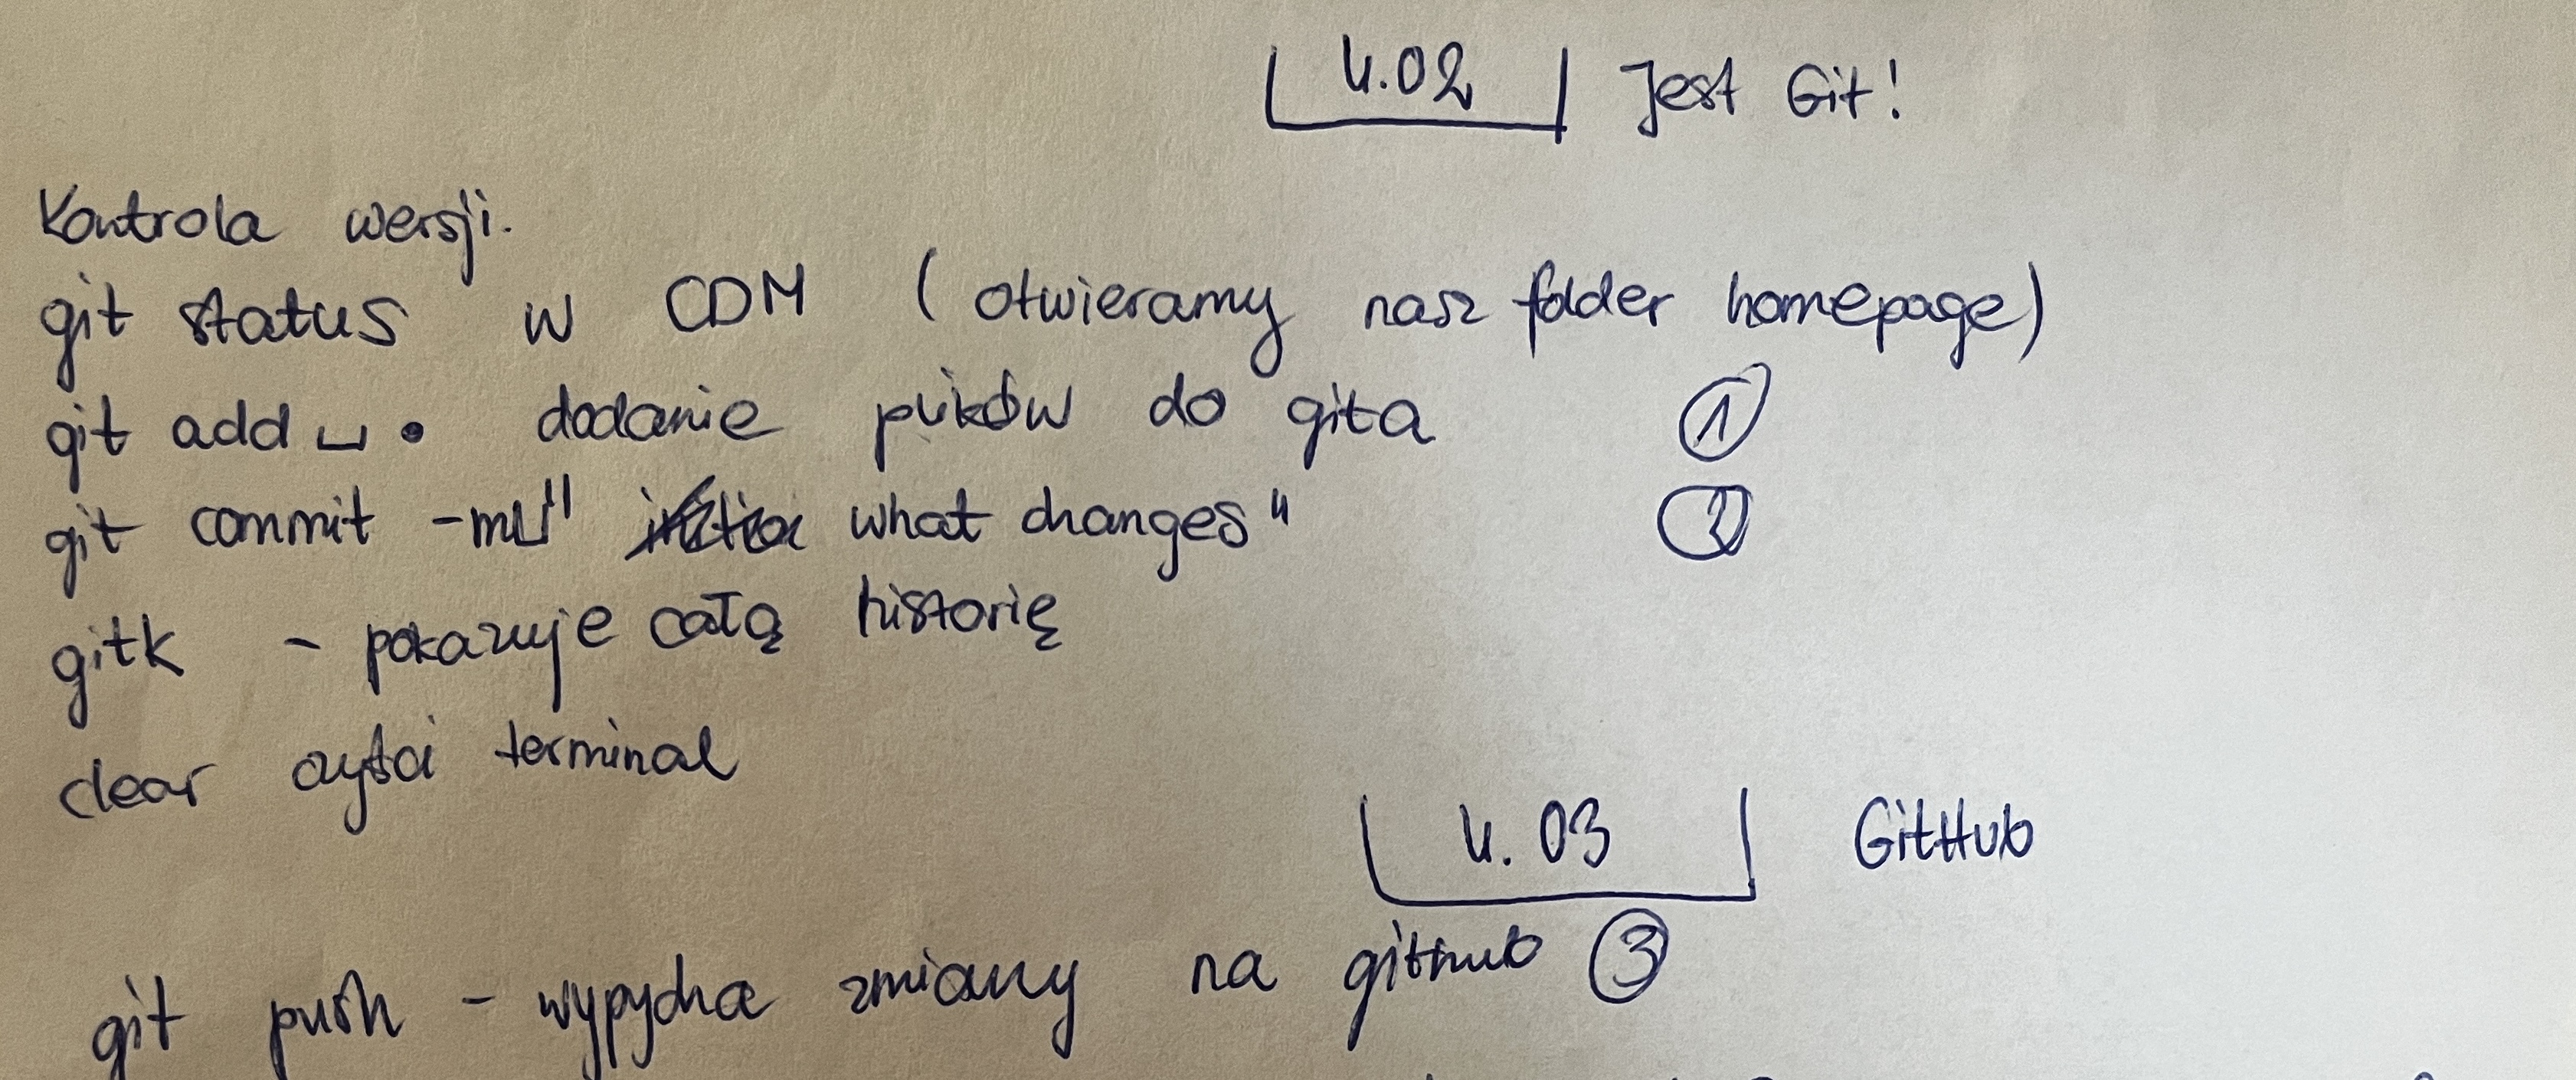 4.02 Jest Git!
Kontrola wersji.
git status w CDM (otwieramy nasz folder homepage)
git add ␣ . dodanie plików do gita ①
git commit -m␣" what changes" ②
gitk - pokazuje całą historię
clear czyści terminal
4.03 GitHub
git push - wypycha zmiany na github ③